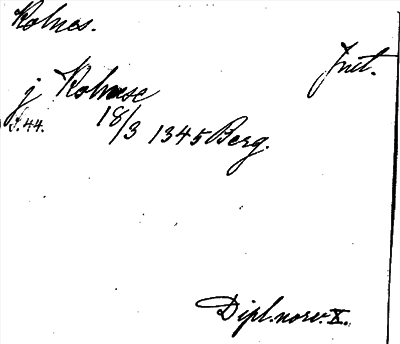 Kolnes.
Jnt.
j Kolnese
S. 44. 18/3 1345 Berg.
Dipl. norv. X.